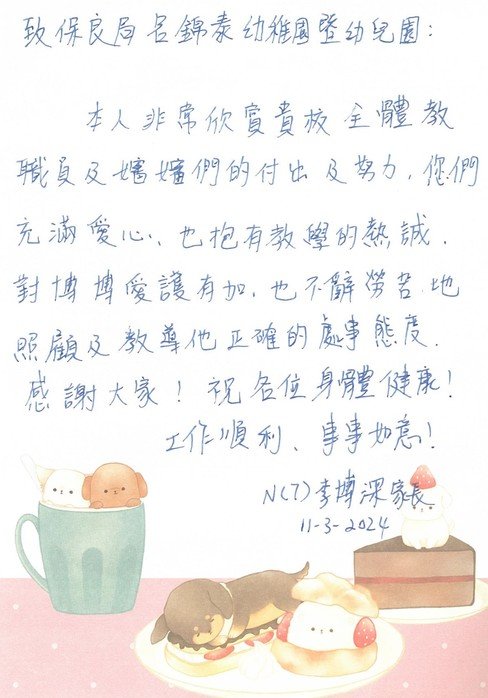 致保良局呂錦泰幼稚園暨幼兒園：
本人非常欣賞貴校全體教
職員及嬸嬸們的付出及努力，您們
充滿愛心，也抱有教學的熱誠，
對博博愛護有加，也不辭勞苦地
照顧及教導他正確的處事態度．
感謝大家！祝各位身體健康！
工作順利、事事如意！
N(7)李博深家長
11-3-2024